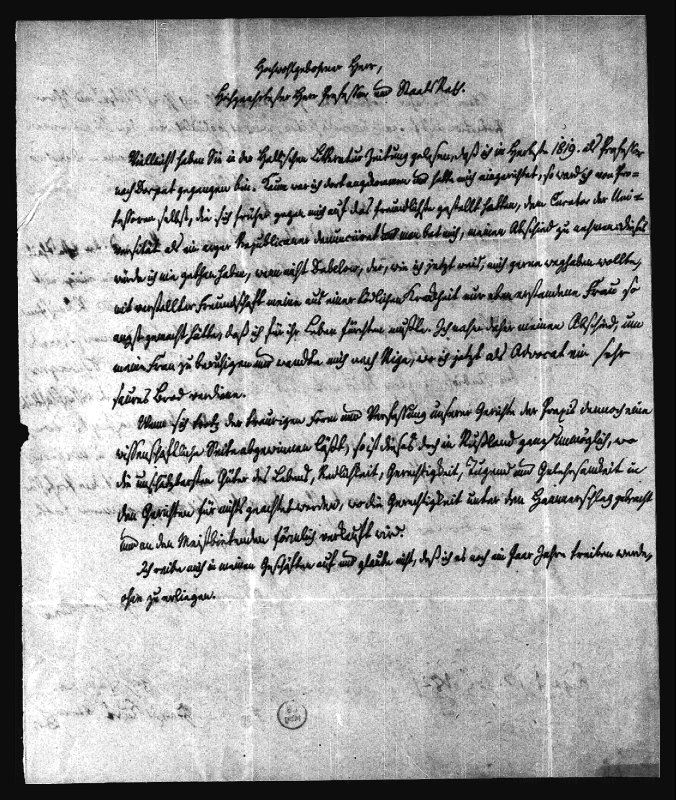 Hochwohlgeborner Herr,
Hochgeehrtester Herr Professor und Staats Rath.
Vielleicht haben Sie in der Hallischen Litteratur Zeitung gelesen, daß ich im Herbste 1819. als Professor
nach Dorpat gegangen bin. Kaum war ich dort angekommen und hatte mich eingerichtet, so ward ich von Pro-
fessoren selbst, die sich früher gegen mich auf das freundlichste gestellt hatten, dem Curator der Uni-
versität als ein arger Republicaner denunciirt und man bat mich, meinen Abschied zu nehmen. Dieses
würde ich nie gethan haben, wenn nicht Dabelow, der, wie ich jetzt weiß, mich gerne weghaben wollte,
mit verstellter Freundschaft meine aus einer tödlichen Krankheit nur eben erstandene Frau so
angst gemacht hätte, daß ich für ihr Leben fürchten mußte. Ich nahm daher meinen Abschied, um
meine Frau zu beruhigen und wandte mich nach Riga, wo ich jetzt als Advocat ein sehr
saures Brod verdiene.
Wenn sich trotz der traurigen Form und Verfassung unserer Gerichte der Praxis dennoch eine
wissenschaftliche Seite abgewinnen läßt, so ist dieses doch in Rußland ganz unmöglich, wo
die unschätzbarsten Güter des Lebens, Redlichkeit, Gerechtigkeit, Tugend und Gelehrsamkeit in
den Gerichten für nichts geachtet werden, wo die Gerechtigkeit unter den Hammerschlag gebracht
und an den Meistbietenden förmlich verkauft wird.
Ich reibe mich in meinen Geschäften auf und glaube nicht, daß ich es noch ein Paar Jahre treiben werde,
ohne zu erliegen.